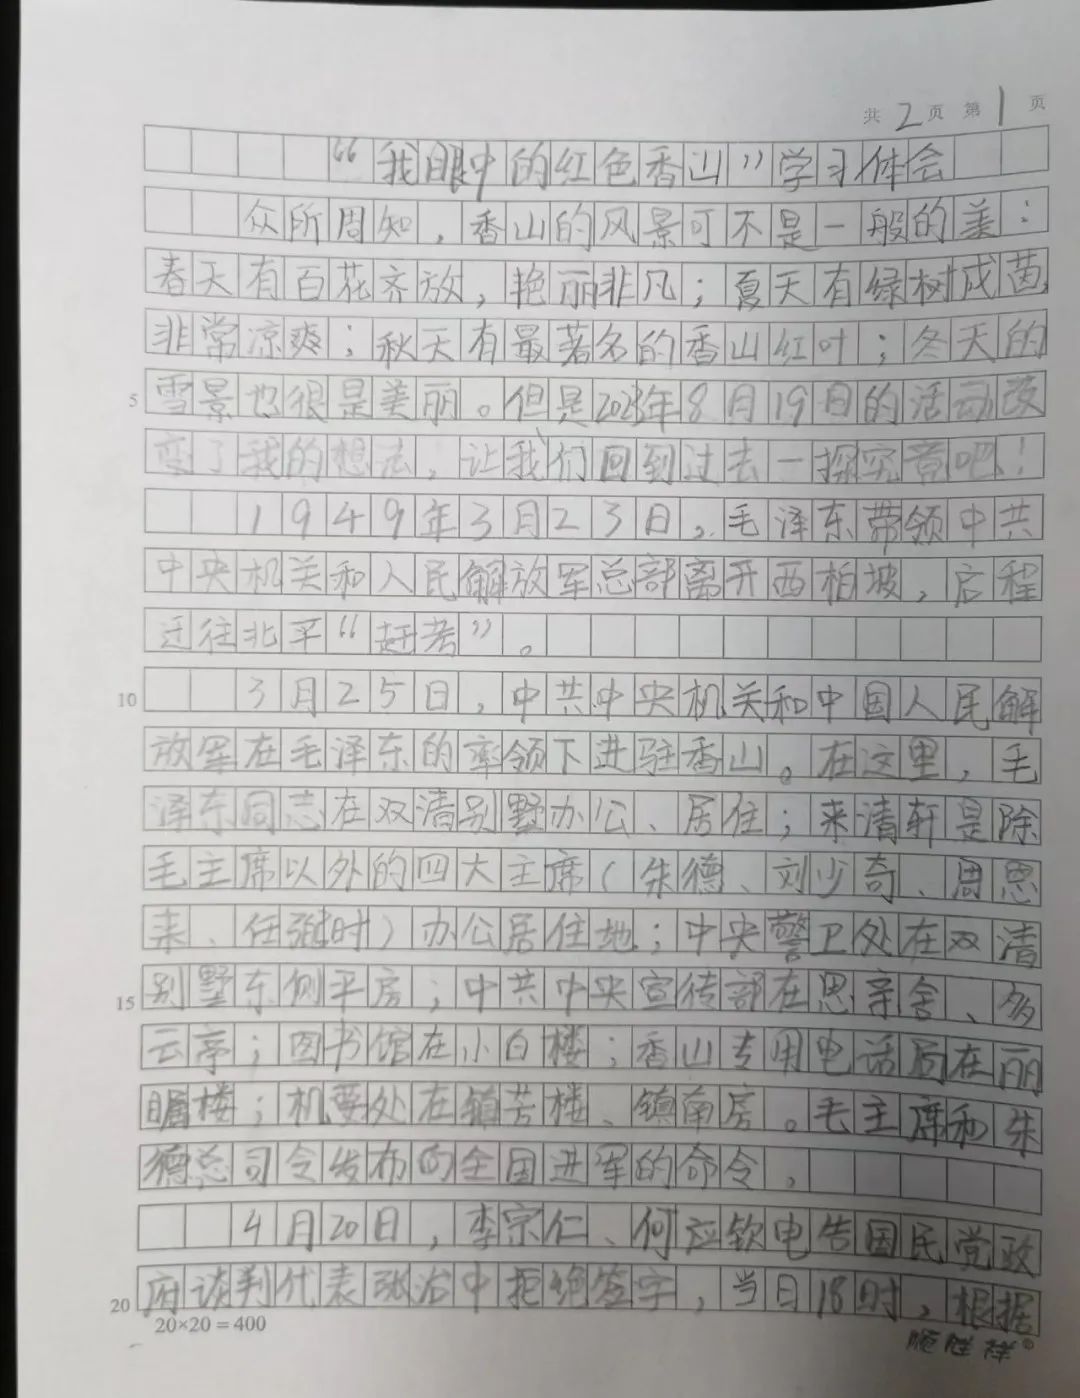 共2页 第1页
“我眼中的红色香山”学习体会
众所周知，香山的风景可不是一般的美：
春天有百花齐放，艳丽非凡；夏天有绿树成茵，
非常凉爽；秋天有最著名的香山红叶；冬天的
5 雪景也很是美丽。但是2023年8月19日的活动改
变了我的想法，让我们回到过去一探究竟吧！
1949年3月23日，毛泽东带领中共
中央机关和人民解放军总部离开西柏坡，启程
迁往北平“赶考”。
10 3月25日，中共中央机关和中国人民解
放军在毛泽东的率领下进驻香山。在这里，毛
泽东同志在双清别墅办公、居住；来清轩是除
毛主席以外的四大主席（朱德、刘少奇、周恩
来、任弼时）办公居住地；中央警卫处在双清
15 别墅东侧平房；中共中央宣传部在思亲舍、多
云亭；图书馆在小白楼；香山专用电话局在丽
瞩楼；机要处在镇芳楼、镇南房。毛主席和朱
德总司令发布向全国进军的命令，
4月20日，李宗仁、何应钦电告国民党政
20 府谈判代表张治中拒绝签字，当日18时，根据
20×20=400
顺胜祥®